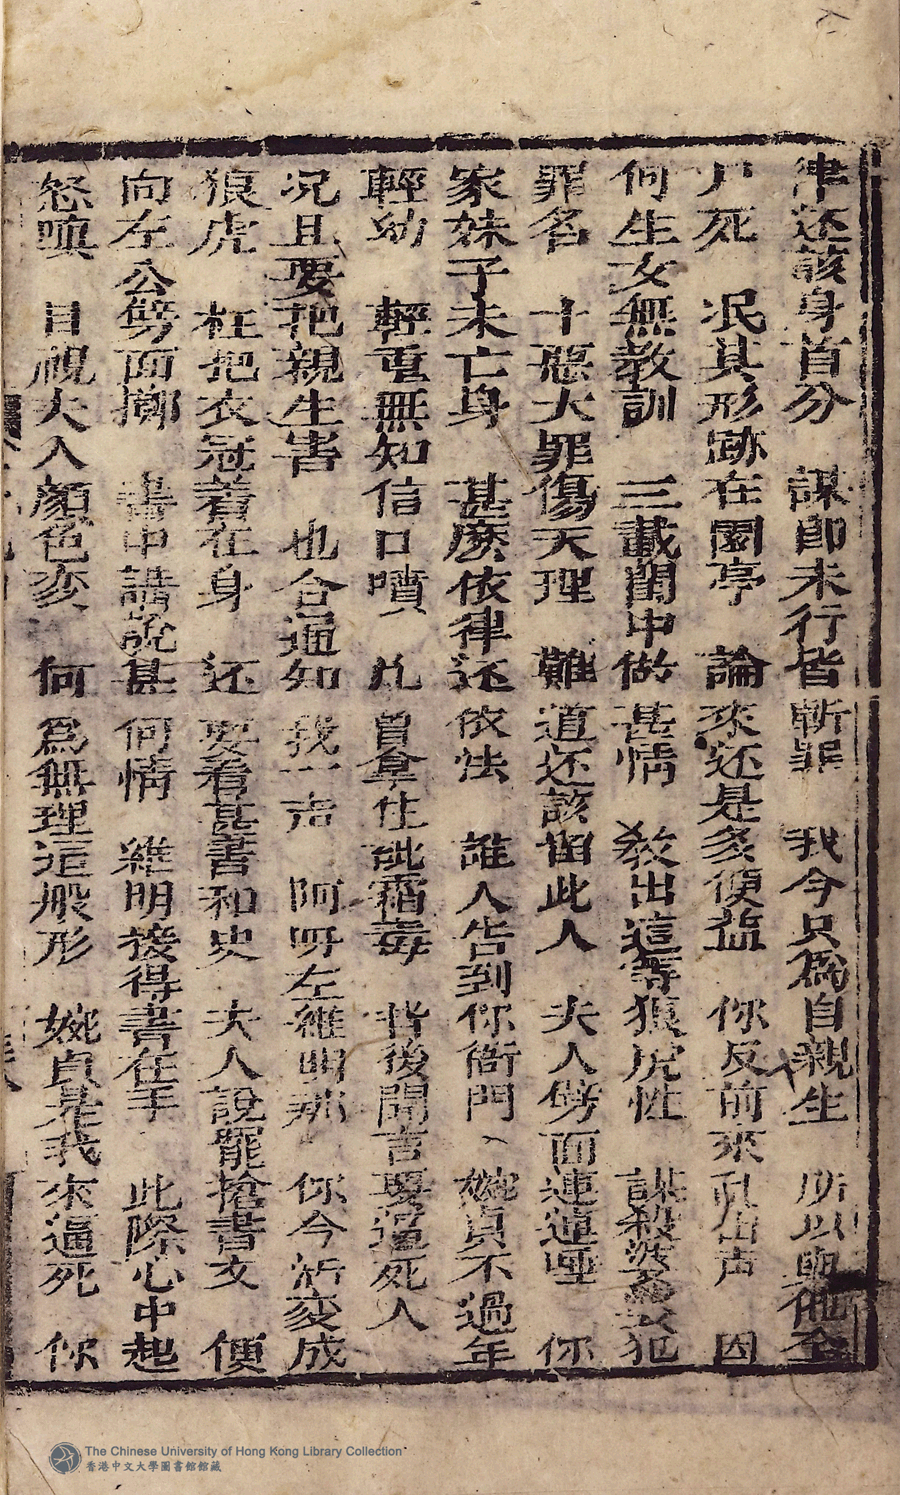 律还該身首分　謀即未行皆斬罪　我今只為自親生　所以與他全
尸死　泯其形跡在園亭　論來还是多便益　你反前來乱出声　因
何生女無教訓　三載閨中做甚情　教出這等狼虎性　謀殺婆犯
罪名　十惡大罪傷天理　難道还該留此人　夫人劈面連連唾　你
家妹子未亡身　甚麽依律还依法　誰人告到你衙門　婉貞不過年
輕幼　輕重無知信口噴　凡曾拿住砒霜毒　背後聞言要逼死人
况且要把親生害　也合通知我一声　阿呀左維明那　你今活变成
狼虎　枉把衣冠着在身　还要看甚書和史　夫人說罷搶書文　便
向左公劈面擲　書中誥說甚何情　維明接得書在手　此際心中起
怒嗔　目視夫人顔色变　何為無理這般形　婉貞是我來逼死　你
The Chinese University of Hong Kong Library Collection
香港中文大學圖書館館藏